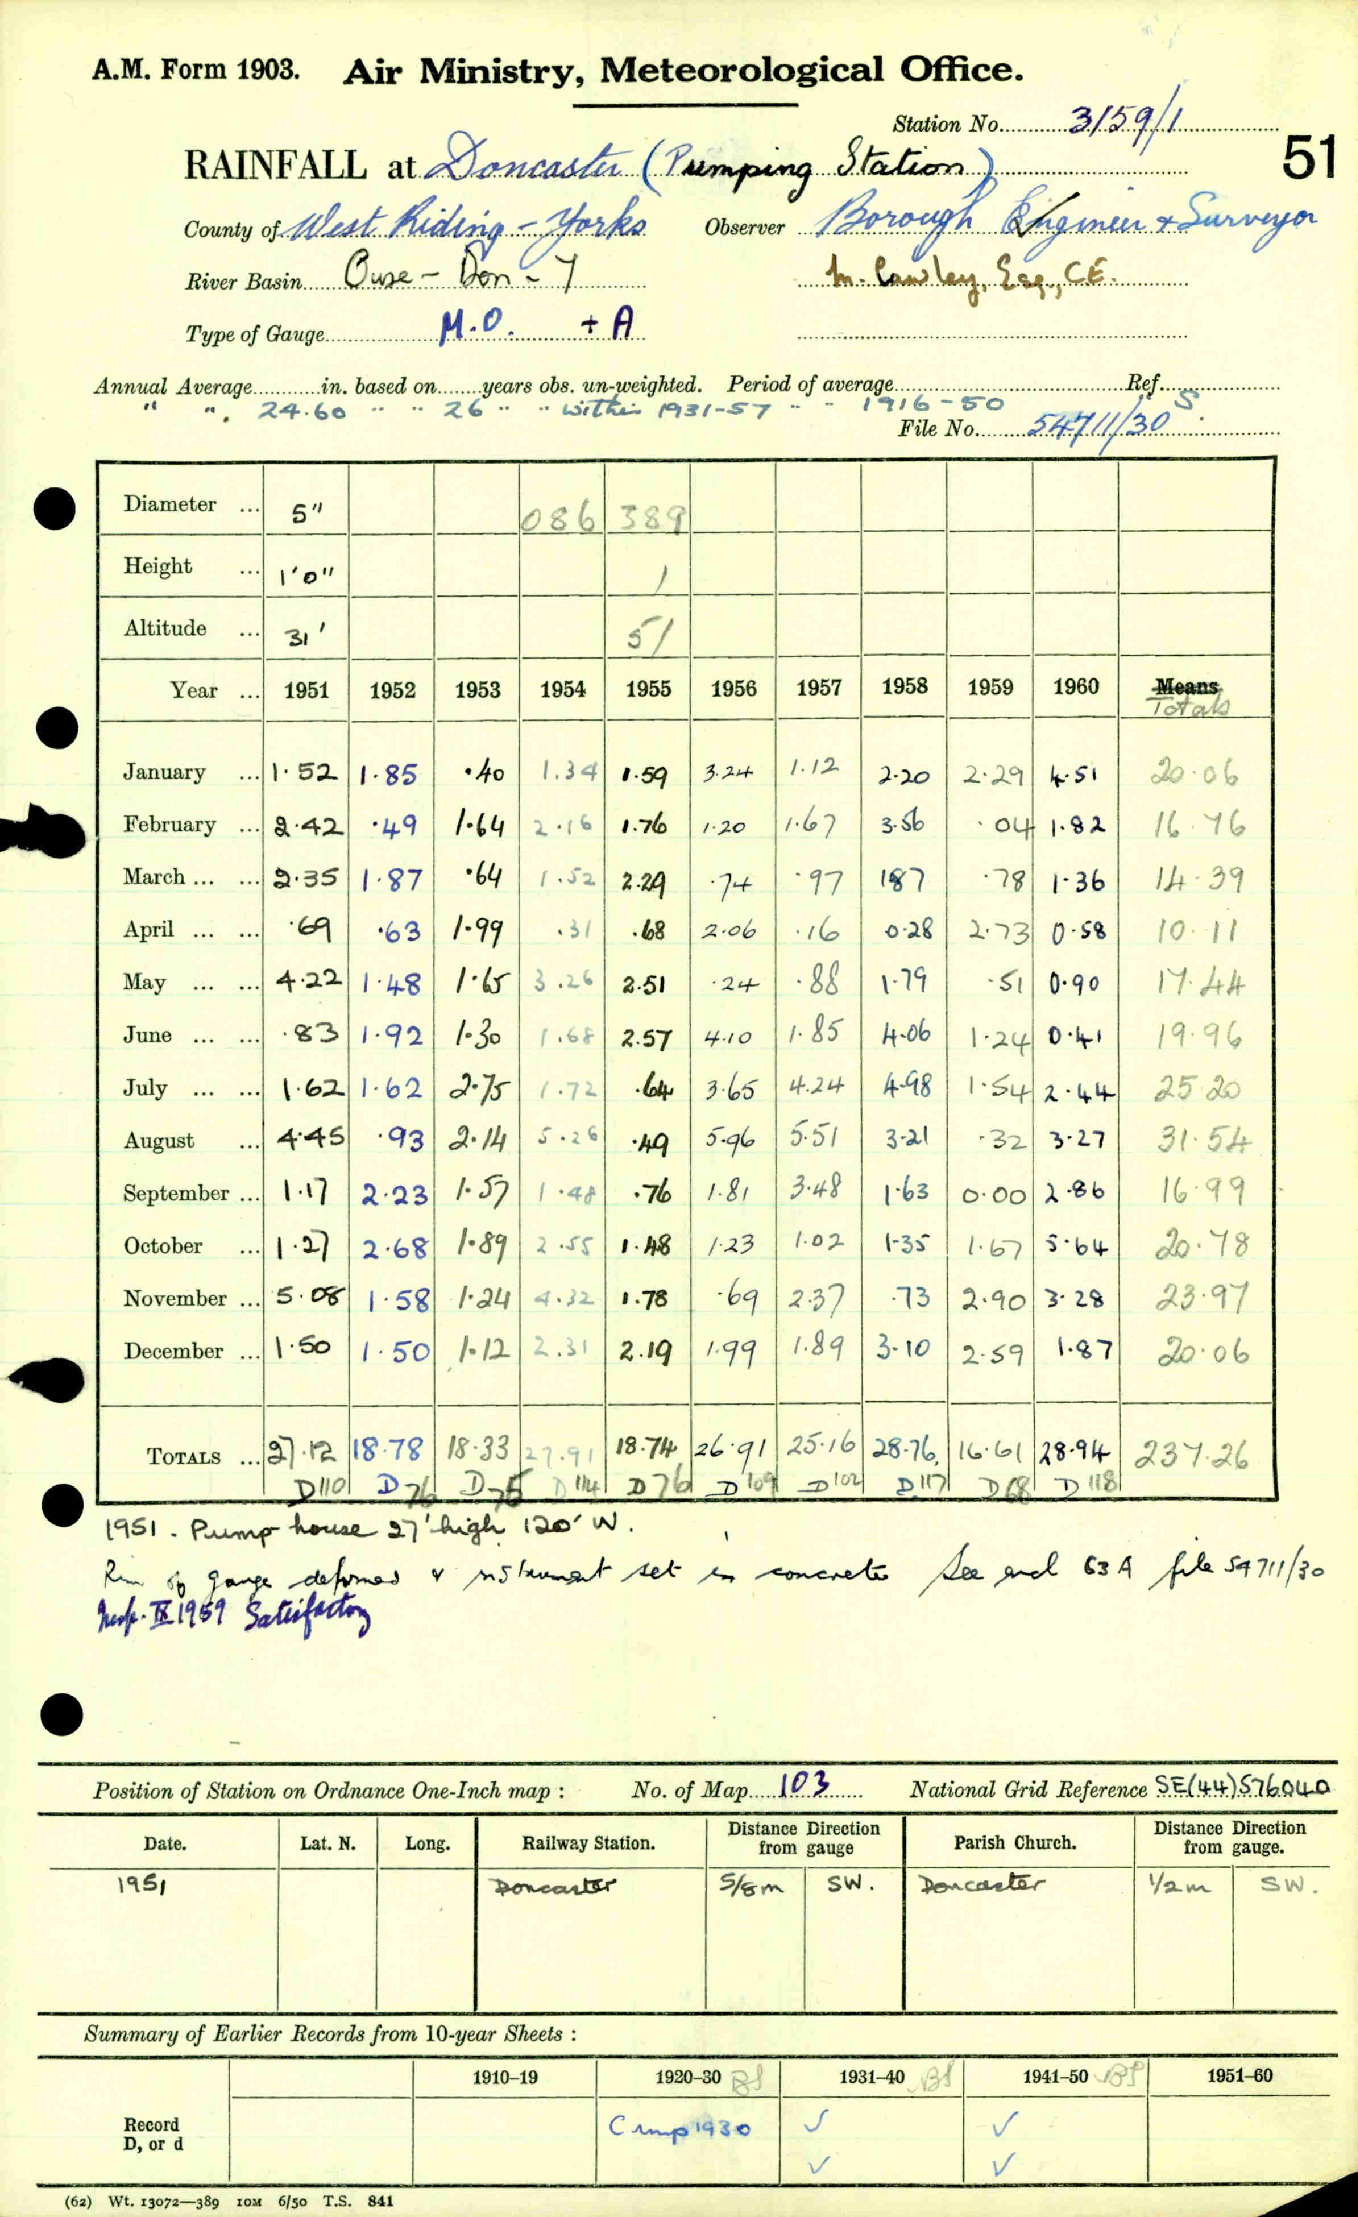 A.M. Form 1903. Air Ministry, Meteorological Office.
Station No. 3159/1
51
RAINFALL at Doncaster (Pumping Station)
County of West Riding - Yorks Observer Borough Engineer & Surveyor
River Basin Ouse - Don - 7 M. Cawley, Esq., C.E.
Type of Gauge M.O. + A
Annual Average in. based on years obs. un-weighted. Period of average Ref. S
" " . 24.60 " " 26 " " within 1931-57 " " 1916-50 S.
File No. 54711/30
Diameter ... 5" 086 389
Height ... 1'0" 1
Altitude ... 31' 51
Year ... 1951 1952 1953 1954 1955 1956 1957 1958 1959 1960 Means
Totals
January ... 1.52 1.85 .40 1.34 1.59 3.24 1.12 2.20 2.29 4.51 20.06
February ... 2.42 .49 1.64 2.16 1.76 1.20 1.67 3.56 .04 1.82 16.76
March ... ... 2.35 1.87 .64 1.52 2.29 .74 .97 187 .78 1.36 14.39
April ... ... .69 .63 1.99 .31 .68 2.06 .16 0.28 2.73 0.58 10.11
May ... ... 4.22 1.48 1.65 3.26 2.51 .24 .88 1.79 .51 0.90 17.44
June ... ... .83 1.92 1.30 1.68 2.57 4.10 1.85 4.06 1.24 0.41 19.96
July ... ... 1.62 1.62 2.75 1.72 .64 3.65 4.24 4.98 1.54 2.44 25.20
August ... 4.45 .93 2.14 5.26 .49 5.96 5.51 3.21 .32 3.27 31.54
September ... 1.17 2.23 1.57 1.48 .76 1.81 3.48 1.63 0.00 2.86 16.99
October ... 1.27 2.68 1.89 2.55 1.48 1.23 1.02 1.35 1.67 5.64 20.78
November ... 5.08 1.58 1.24 4.32 1.78 .69 2.37 .73 2.90 3.28 23.97
December ... 1.50 1.50 1.12 2.31 2.19 1.99 1.89 3.10 2.59 1.87 20.06
TOTALS ... 27.12 18.78 18.33 27.91 18.74 26.91 25.16 28.76. 16.61 28.94 237.26
D110 D76 D75 D114 D76 D109 D102 D117 D68 D118
1951. Pump house 27' high 120' W.
Rim of gauge deformed & instrument set in concrete See encl 63A file 54711/30
Insp. IX 1959 Satisfactory
Position of Station on Ordnance One-Inch map : No. of Map 103 National Grid Reference SE(44)576040
Date. Lat. N. Long. Railway Station. Distance from Direction gauge Parish Church. Distance from Direction gauge.
1951 Doncaster 5/8m SW. Doncaster 1/2m SW.
Summary of Earlier Records from 10-year Sheets :
1910-19 1920-30 1931-40 1941-50 1951-60
Record C 1930 ✓ ✓
D, or d ✓ ✓
(62) Wt. 13072—389 10M 6/50 T.S. 841